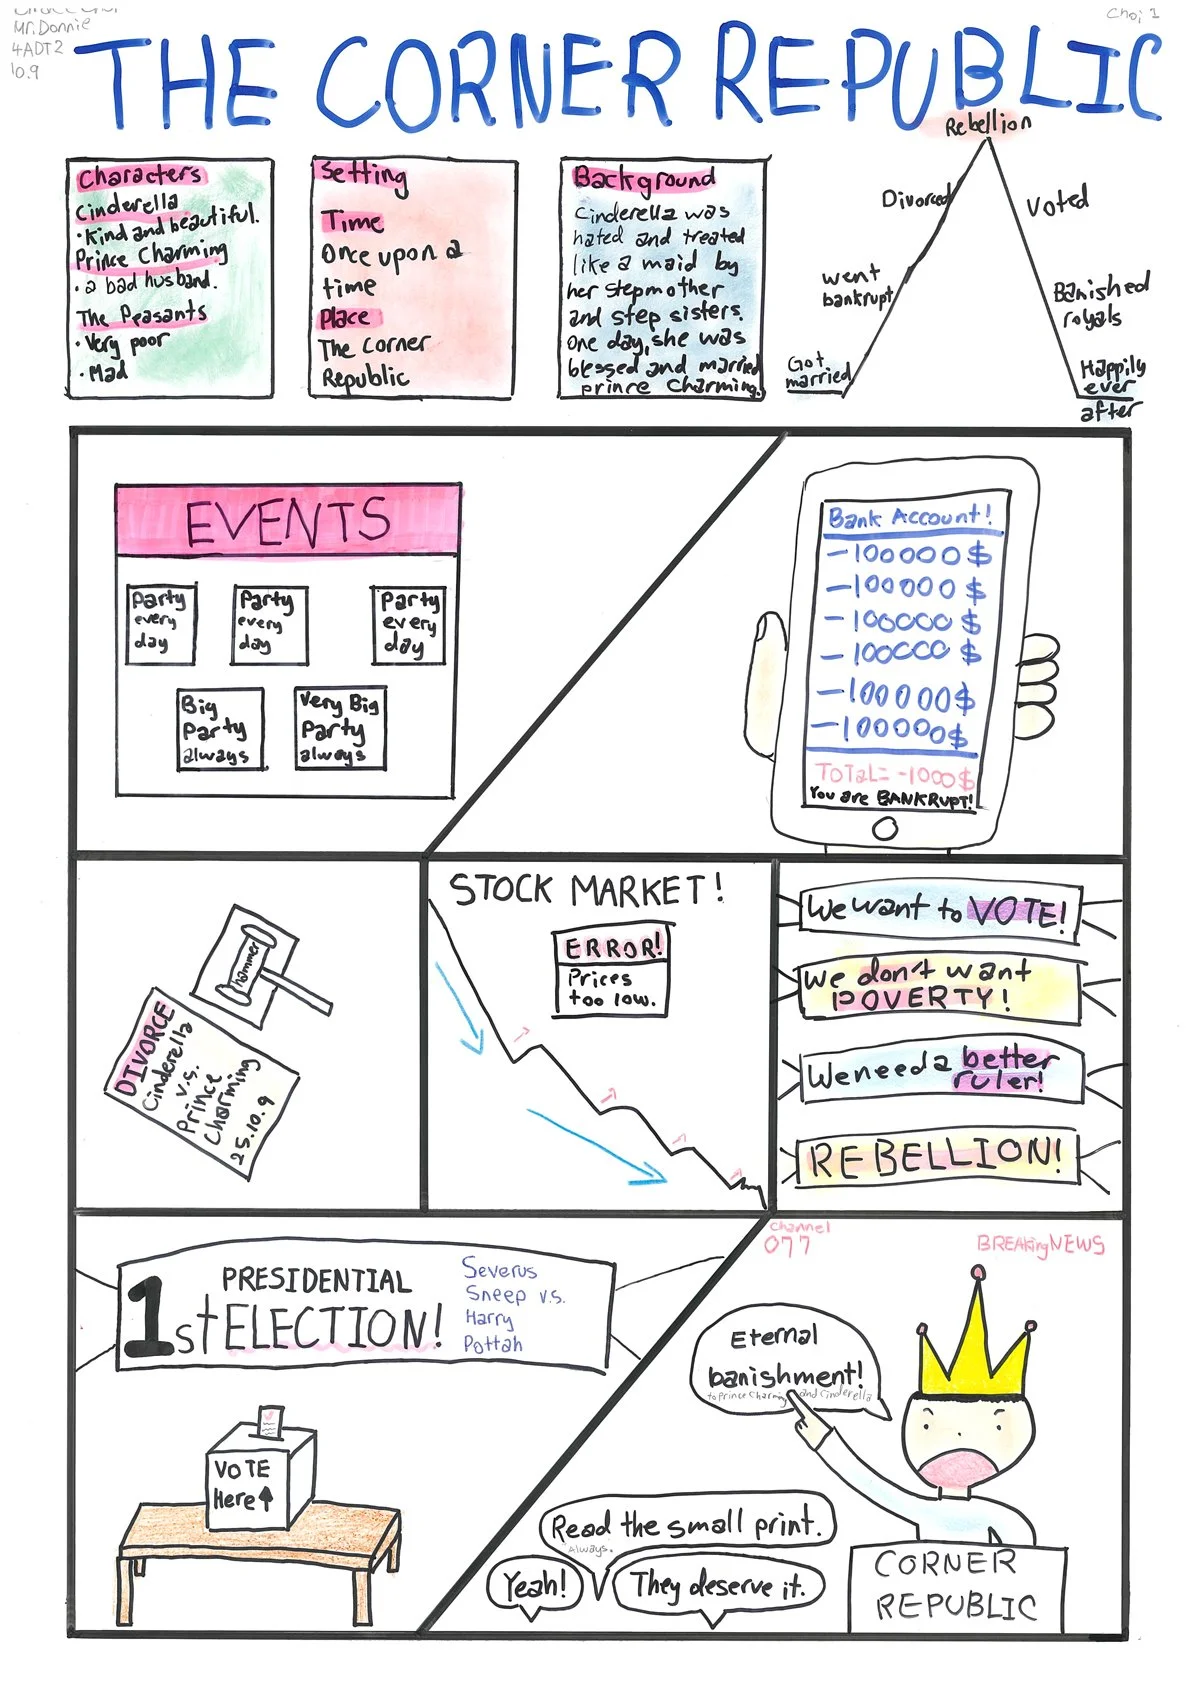 Mr. Donnie
4ADT2
10.9
Choi 1
THE CORNER REPUBLIC
Characters
Cinderella
• Kind and beautiful.
Prince Charming
• a bad husband.
The Peasants
• Very poor
• Mad
Setting
Time
Once upon a
time
Place
The Corner
Republic
Background
Cinderella was
hated and treated
like a maid by
her stepmother
and step sisters.
One day, she was
blessed and married
prince Charming.
Rebellion
Divorced
Voted
went
bankrupt
Banished
royals
Got
married
Happily
ever
after
EVENTS
Party
every
day
Party
every
day
Party
every
day
Big
Party
always
Very Big
Party
always
Bank Account!
-100000$
-100000$
-100000$
-100000$
-100000$
-100000$
Total= -1000$
You are BANKRUPT!
hammer
DIVORCE
Cinderella
v.s.
Prince
Charming
25.10.9
STOCK MARKET!
ERROR!
Prices
too low.
We want to VOTE!
We don't want
POVERTY!
We need a better
ruler!
REBELLION!
1st PRESIDENTIAL
ELECTION!
Severus
Sneep v.s.
Harry
Pottah
VOTE
Here↑
channel
077
BREAkingNEWS
Eternal
banishment!
to Prince Charming and Cinderella
Read the small print.
Always.
Yeah!
They deserve it.
CORNER
REPUBLIC